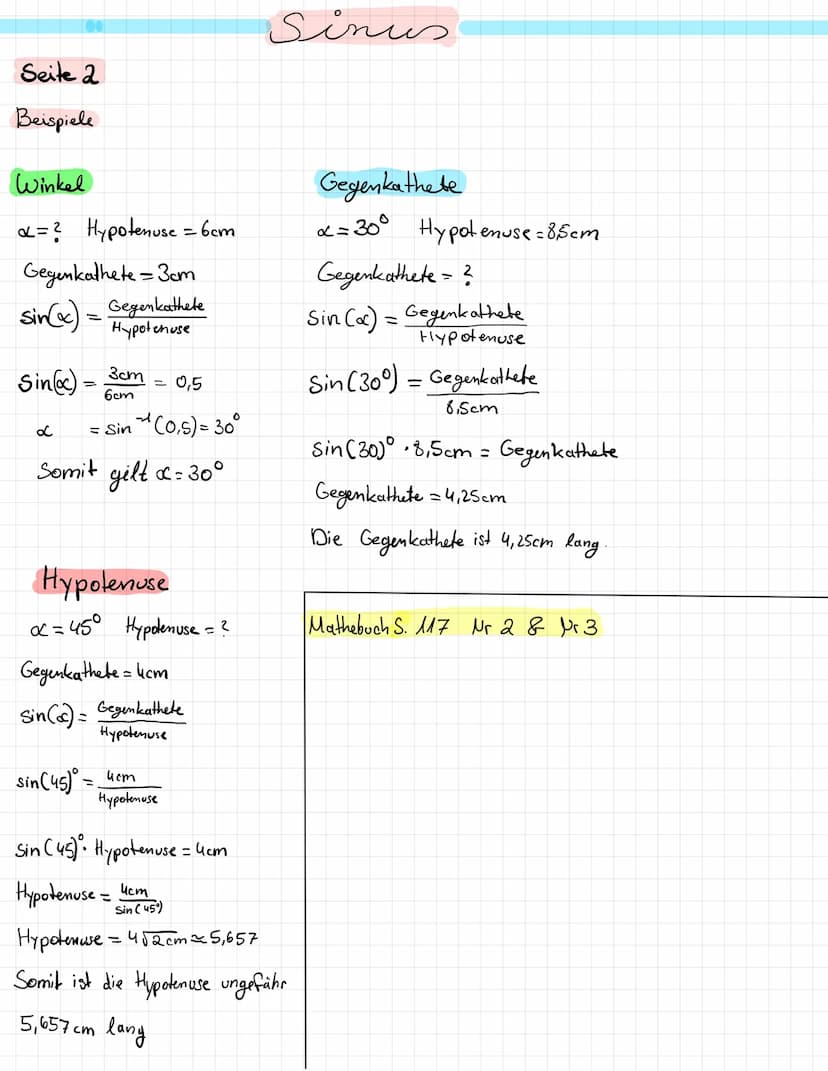 Sinus
Seite 2
Beispiele
Winkel
α=? Hypotenuse = 6cm
Gegenkathete = 3cm
sin(α) = Gegenkathete/Hypotenuse
sin(α) = 3cm/6cm = 0,5
α = sin⁻¹(0,5) = 30°
Somit gilt α = 30°
Gegenkathete
α = 30° Hypotenuse = 8,5cm
Gegenkathete = ?
Sin(α) = Gegenkathete/Hypotenuse
Sin(30°) = Gegenkathete/8,5cm
Sin(30)° · 8,5cm = Gegenkathete
Gegenkathete = 4,25cm
Die Gegenkathete ist 4,25cm lang.
Hypotenuse
α = 45° Hypotenuse = ?
Gegenkathete = 4cm
sin(α) = Gegenkathete/Hypotenuse
sin(45)° = 4cm/Hypotenuse
sin(45)° · Hypotenuse = 4cm
Hypotenuse = 4cm/sin(45°)
Hypotenuse = 4√2cm ≃ 5,657
Somit ist die Hypotenuse ungefähr
5,657cm lang
Mathebuch S. 117 Nr 2 & Nr 3